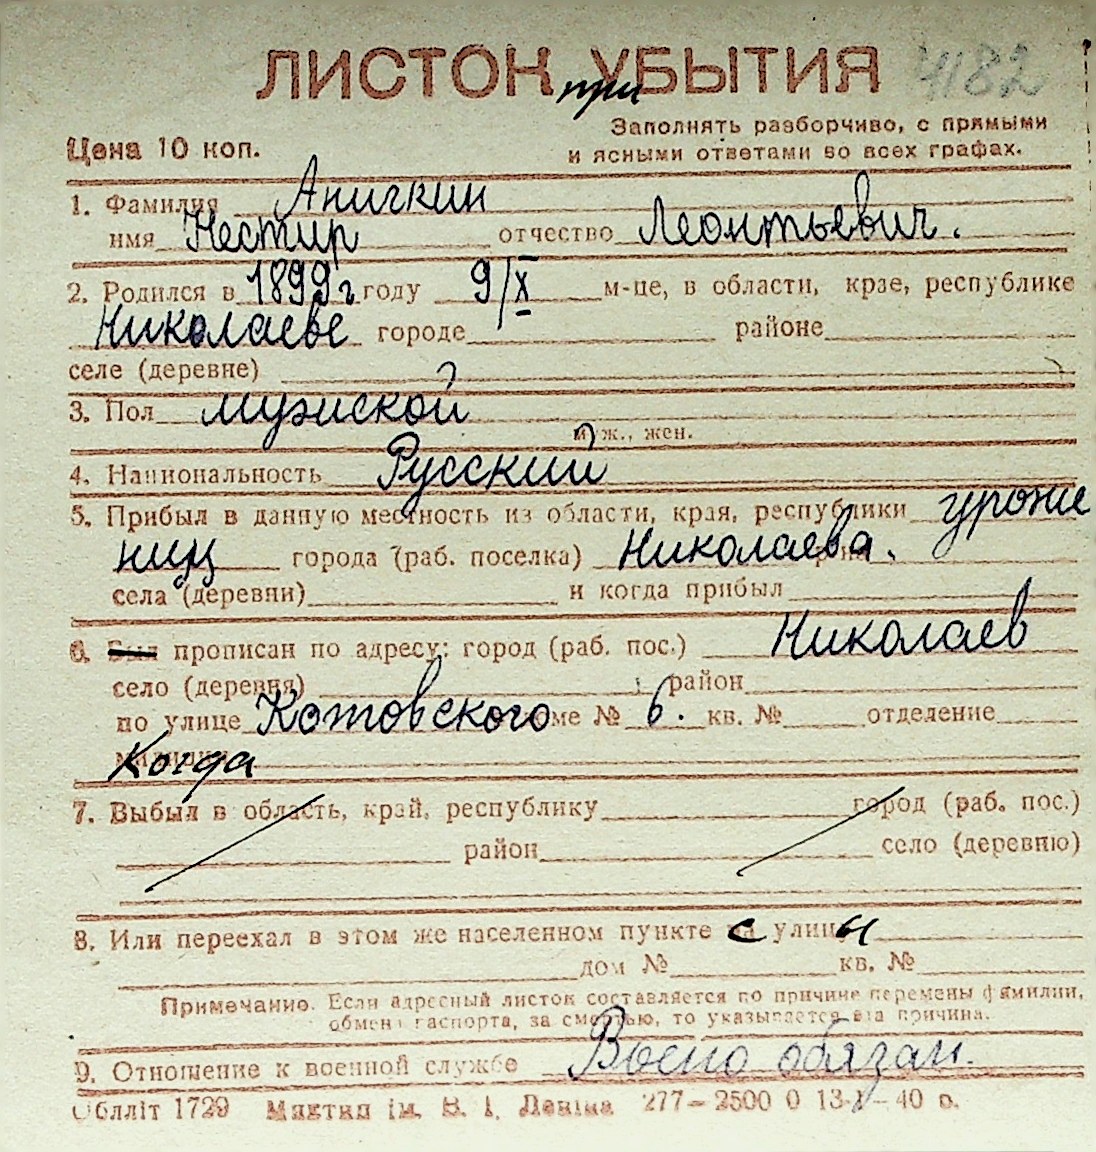 ЛИСТОК при УБЫТИЯ 4182
Заполнять разборчиво, с прямыми
Цена 10 коп. и ясными ответами во всех графах.
1. Фамилия Аничкин
имя Нестир отчество Леонтьевич.
2. Родился в 1899г году 9/X м-це, в области, крае, республике
Николаеве городе районе
селе (деревне)
3. Пол мужской
муж., жен.
4. Национальность Русский
5. Прибыл в данную местность из области, края, республики уроже
ниц города (раб. поселка) Николаева.
села (деревни) и когда прибыл
6. Был прописан по адресу: город (раб. пос.) Николаев
село (деревня) район
по улице Котовского доме № 6. кв. № отделение
милиции Когда
7. Выбыл в область, край, республику город (раб. пос.)
район село (деревню)
8. Или переехал в этом же населенном пункте с улицы
дом № кв. №
Примечание. Если адресный листок составляется по причине перемены фамилии,
обмена паспорта, за смертью, то указывается эта причина.
9. Отношение к военной службе Воено обязан.
Облліт 1729 ім. В. І. Леніна 277—2500 0 13-X—40 р.